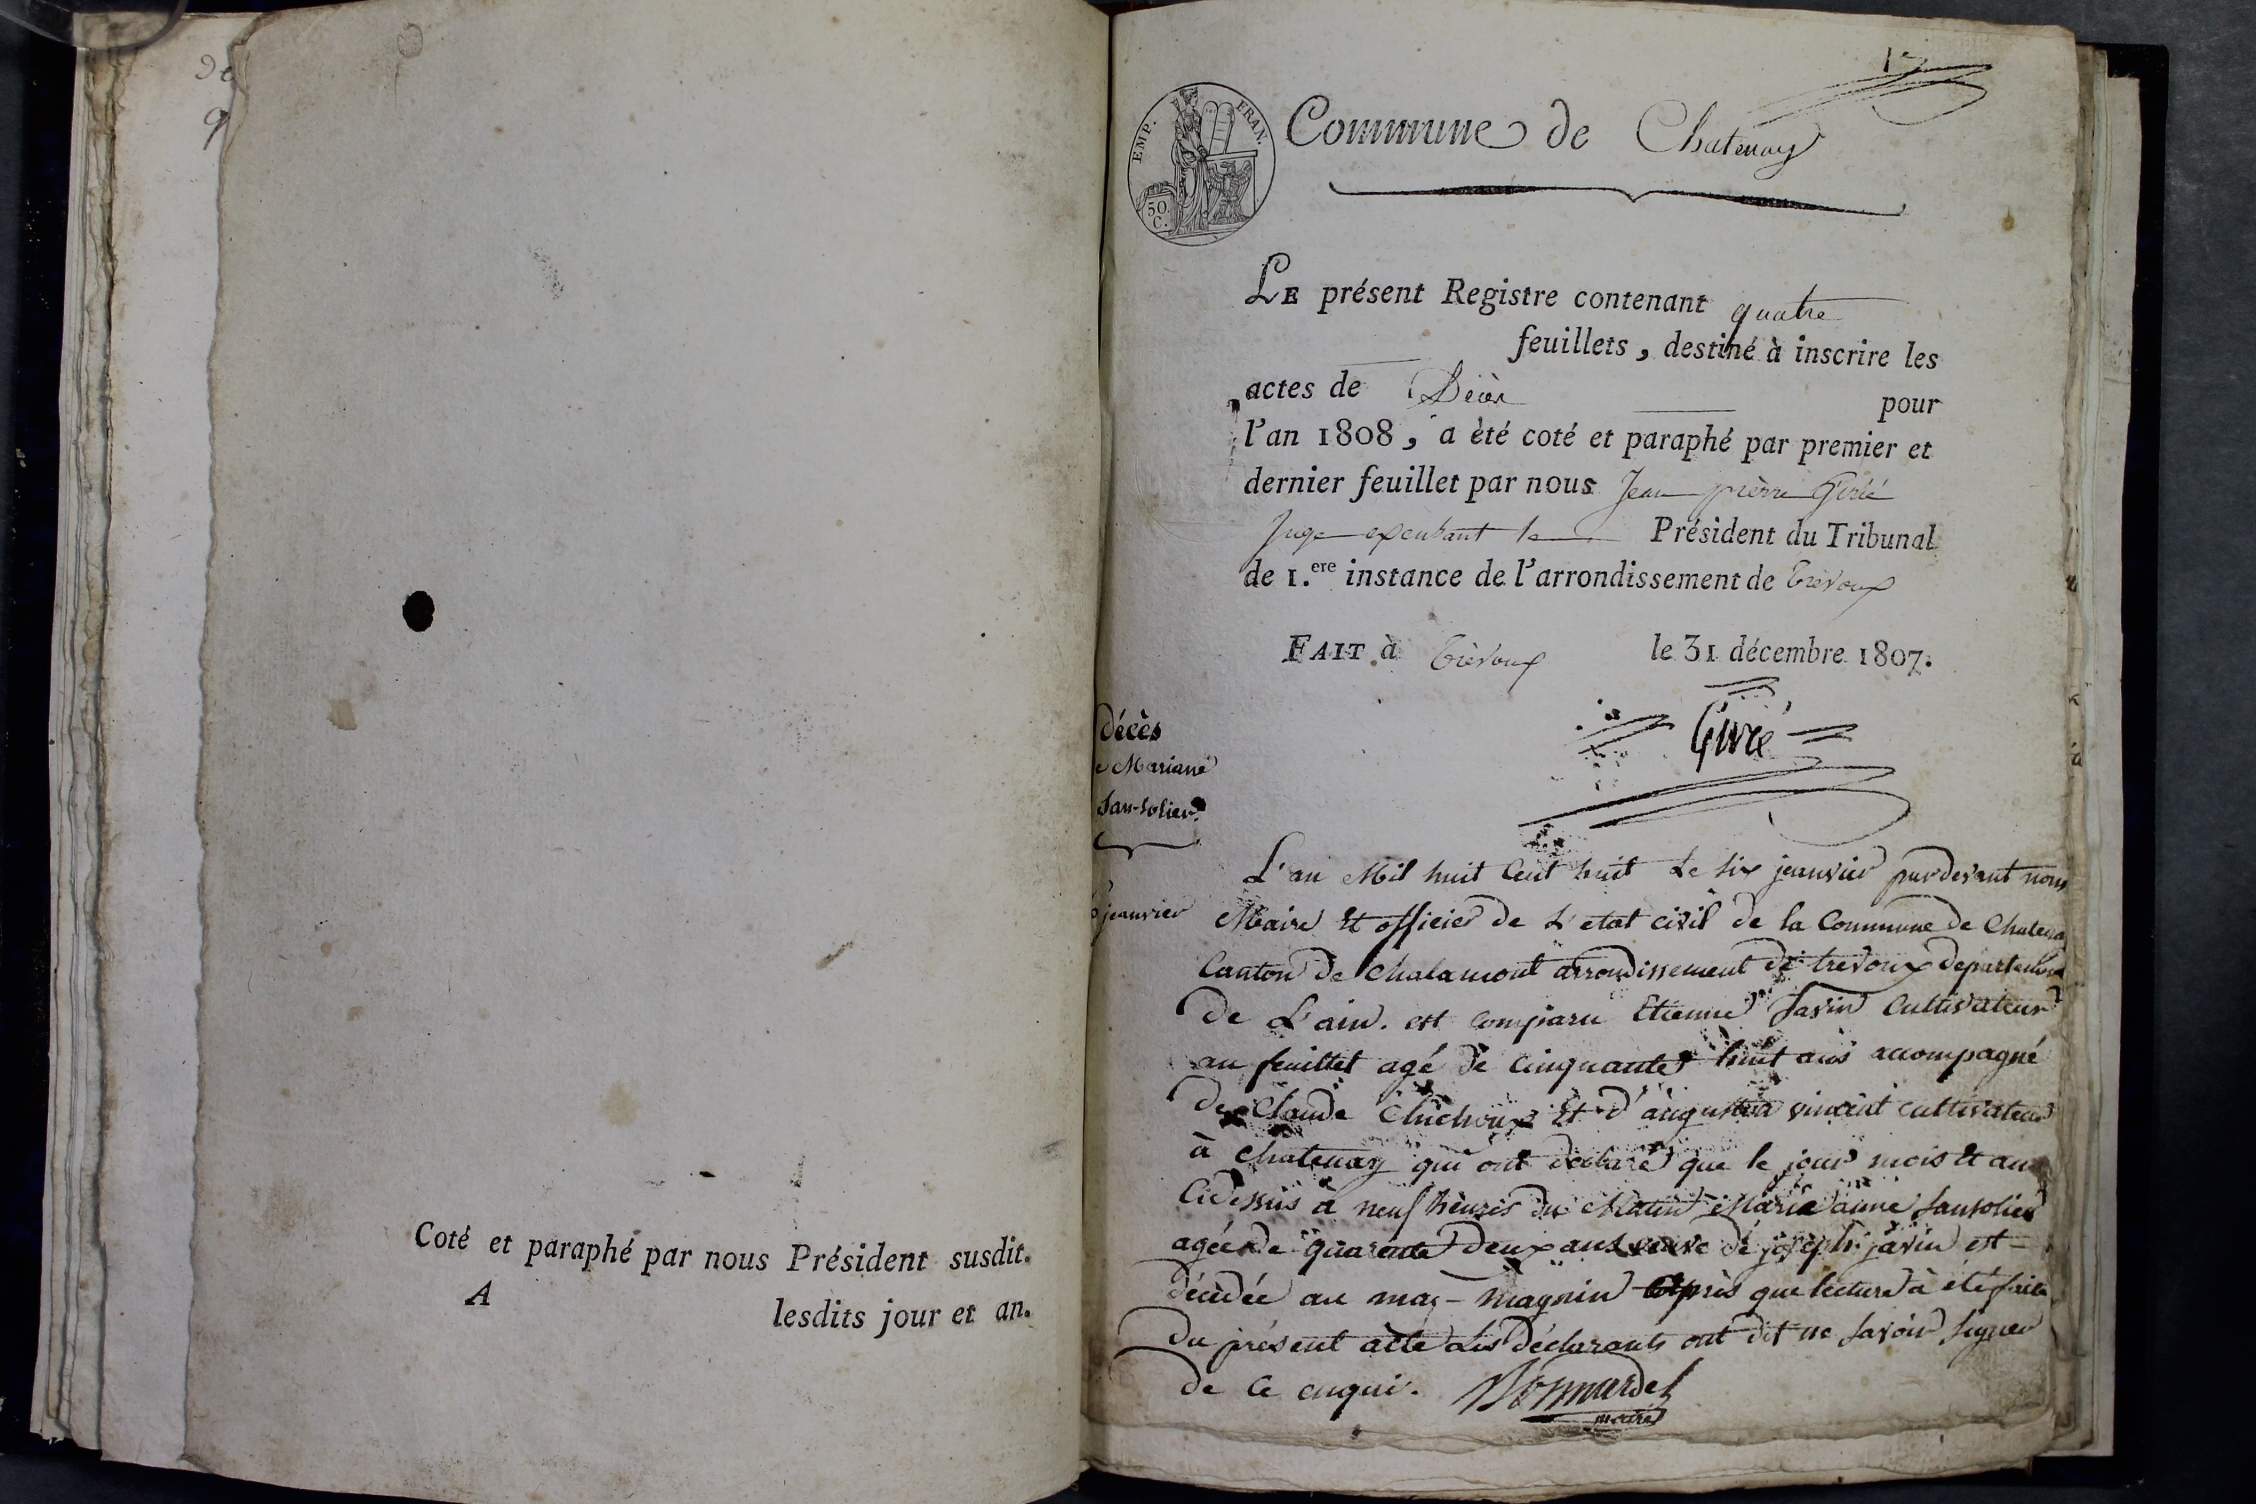 Coté et paraphé par nous Président susdit.
A
lesdits jour et an.
EMP. FRAN.
50
C.
Commune de Chatenay
LE présent Registre contenant quatre
feuillets, destiné à inscrire les
actes de Décès
pour
l'an 1808, a èté coté et paraphé par premier et
dernier feuillet par nous Jean pierre Girié
Juge exerçant le Président du Tribunal
de 1.ere instance de l'arrondissement de Trévoux
FAIT à Trévoux le 31 décembre 1807.
Girié
Décès
Mariane
San-solier
6 jeanvier
L'an Mil huit Cent huit Le six jeanvier pardevant nous
Maire Et officier de L'etat civil de la Commune de Chatenay
Canton de Chalamont arrondissement de trevoux departement
de L'ain. est comparu Etienne Javin Cultivateur
au feuillet agé de cinquante huit ans accompagné
de Claude Chichoux Et d'augustin vincent cultivateur
à chatenay qui ont déclaré que le jour mois et an
Cidessus à neuf heures du Matin Marie anne Sansolier
agée de quarente deux ans veuve de joseph javin est
décédée au mas-magnin après que lecture à été faite
du présent acte Les déclarants ont dit ne savoir signer
de ce enqui. Bonnardel
maire